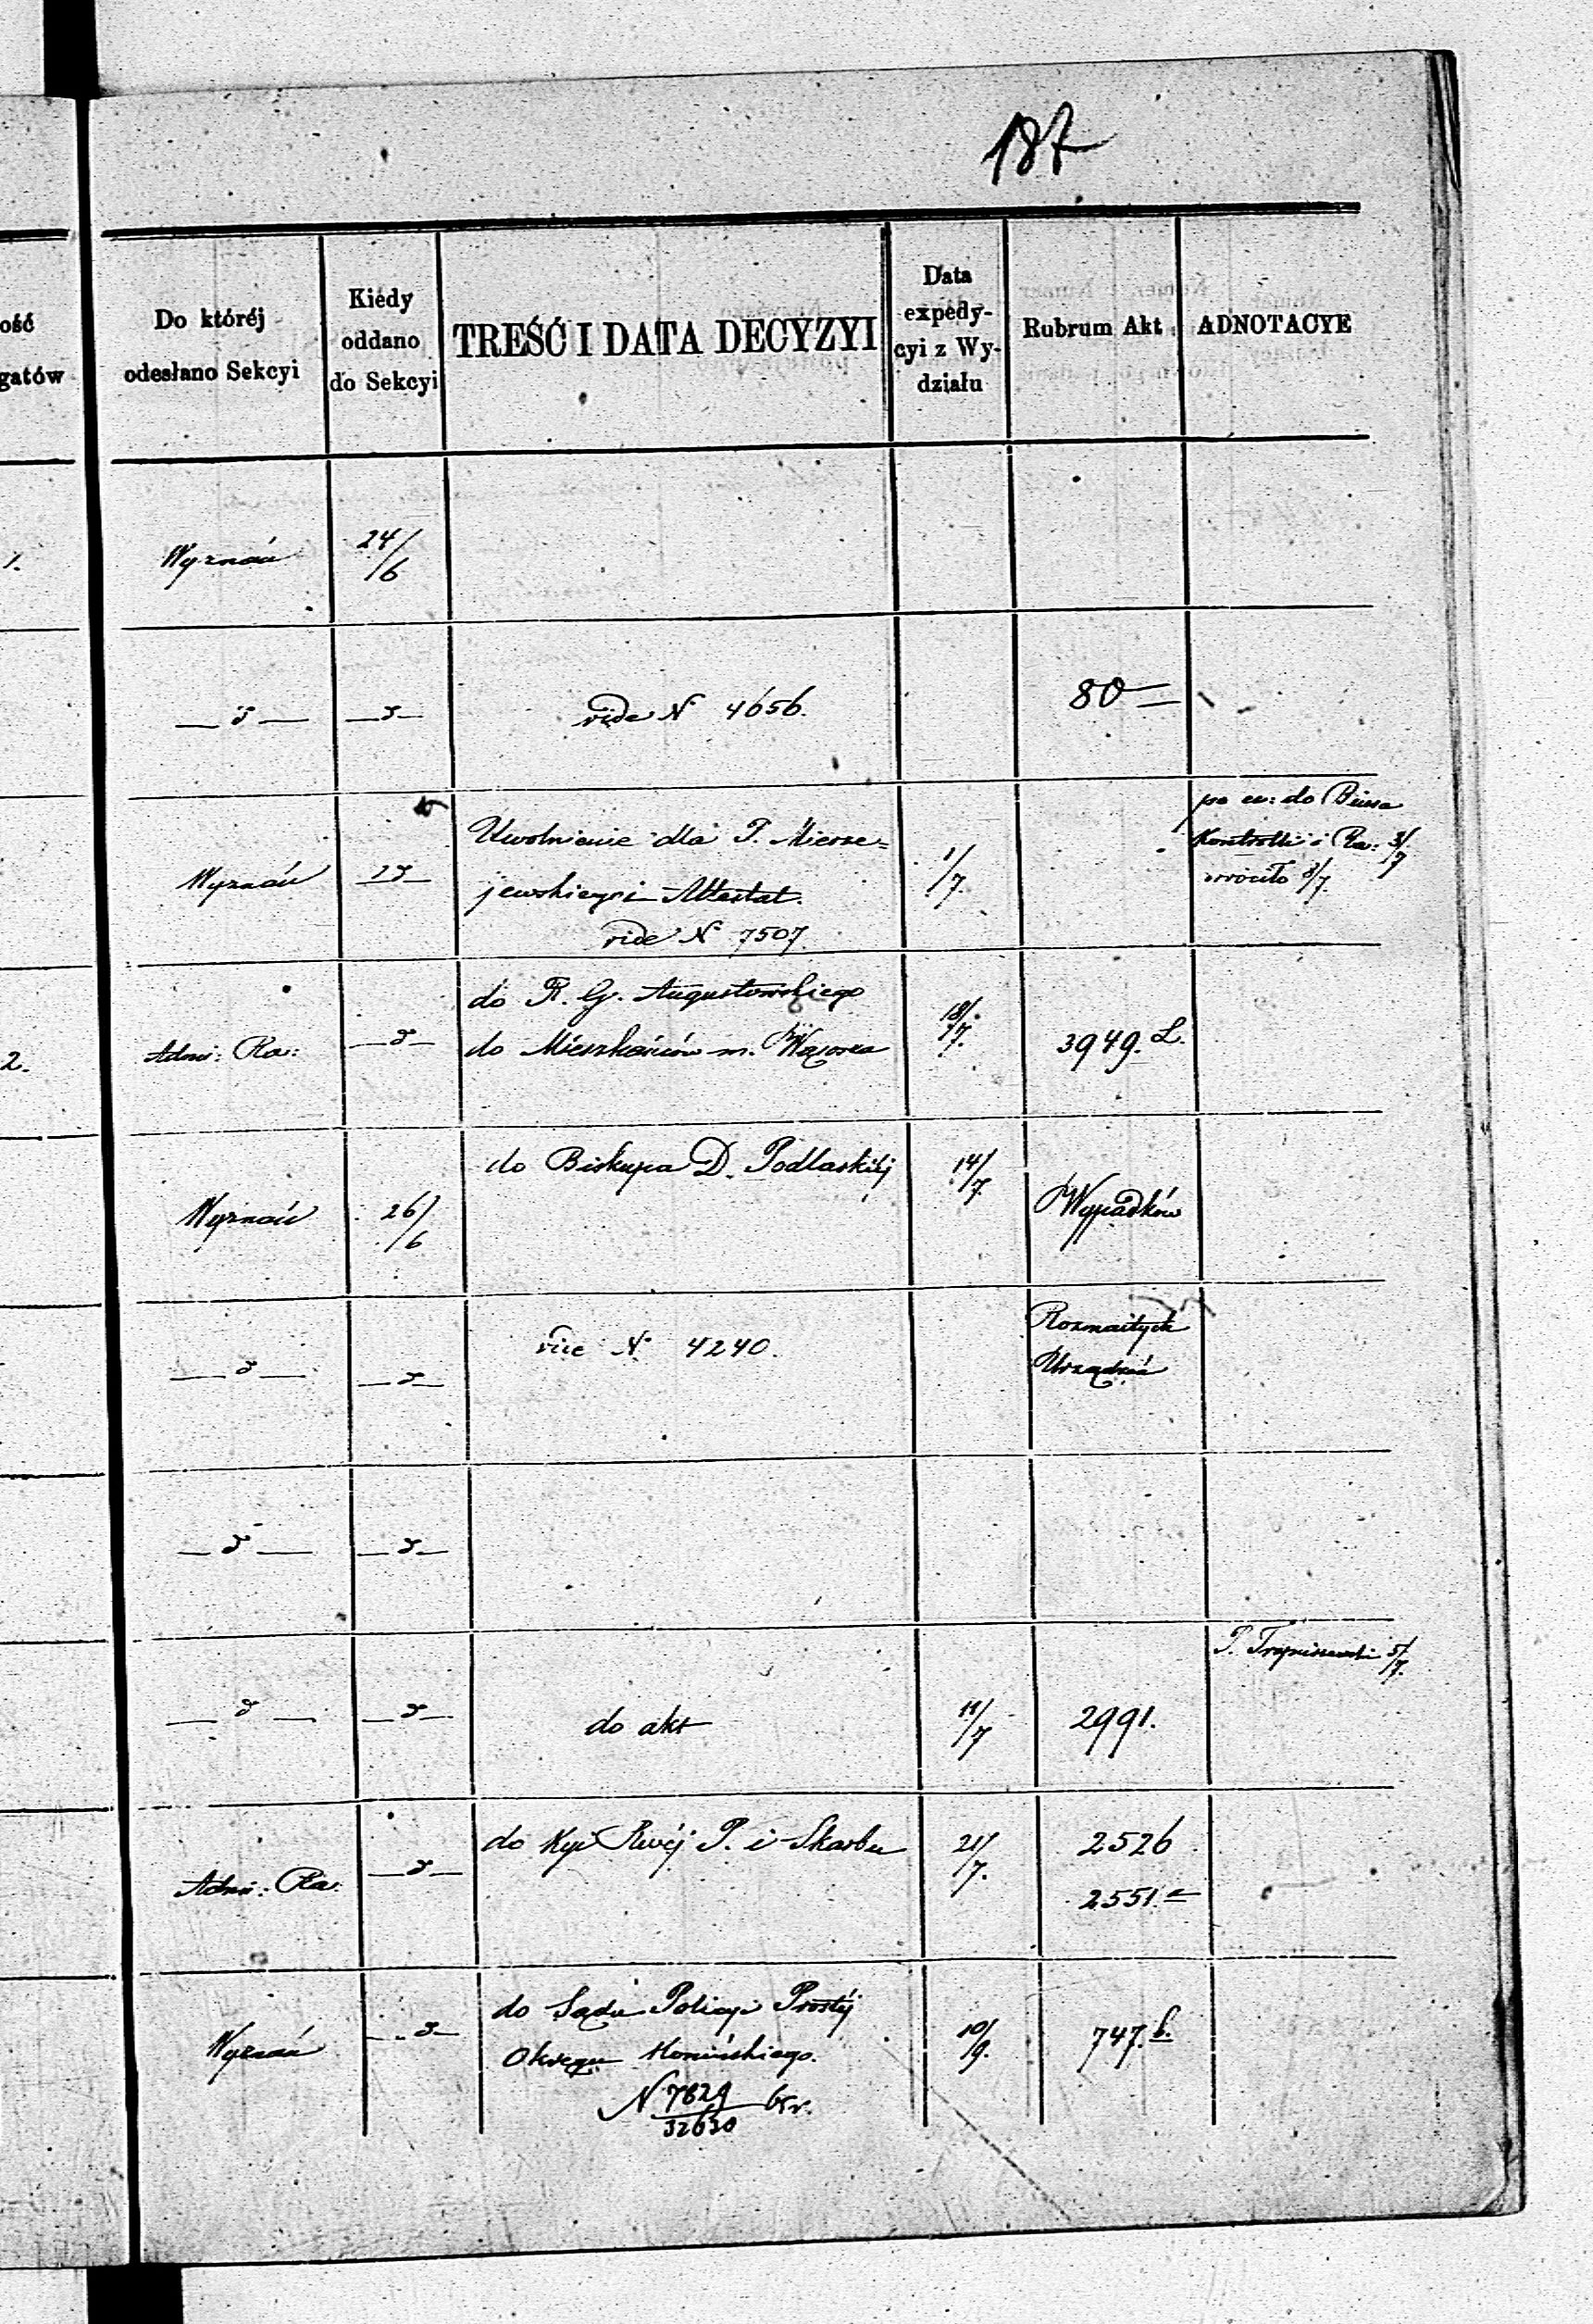 187
ość
gatów
Do któréj
odesłano Sekcyi
Kiédy
oddano
do Sekcyi
TREŚĆ I DATA DECYZYI
Data
expedy-
cyi z Wy-
działu
Rubrum Akt
ADNOTACYE
1.
Wyznań
24/6
— d —
— d —
vide N 4656.
80
Wyznań
— d —
Uwolnienie dla P. Mierze=
jewskiego i Attestat.
vide N 7507
1/7.
po w: do Biura
Kontrolli i Ra: 3/7
wróciło 8/7.
2.
Admi: Ra:
— d —
do R. G. Augustowskiego
do Mieszkańców m. Wąsosza
18/7.
3949. L.
Wyznań
26/6
do Biskupa D. Podlaskiéj
14/7
Wypadków
— d —
— d —
vide N 4240.
Rozmaitych
Urządzeń
— d —
— d —
— d —
— d —
do akt
11/7
2991.
P. 5/7.
Admi: Ra:
— d —
do Kyi Rwéj P. i Skarbu
21/7.
2526
2551.
Wyznań
— d —
do Sądu Policyi Prostéj
Okręgu Konińskiego.
N 7829/32630
10/9.
747. b.